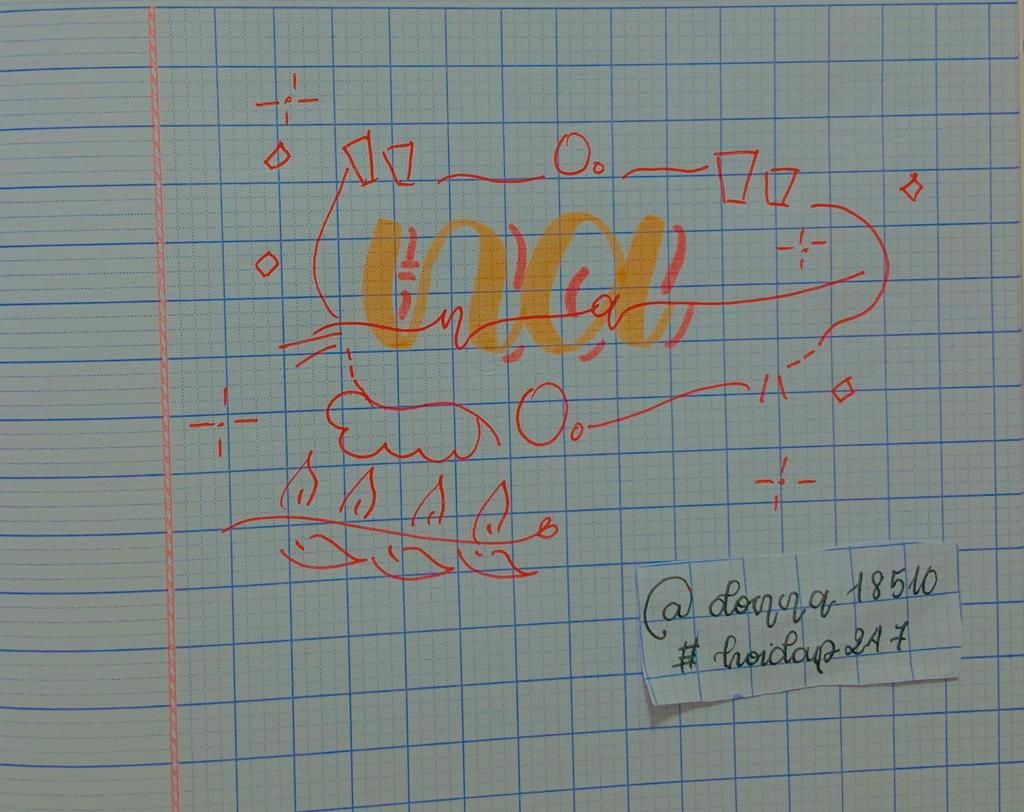 na
n a
@ donna 18510
# hoidap247